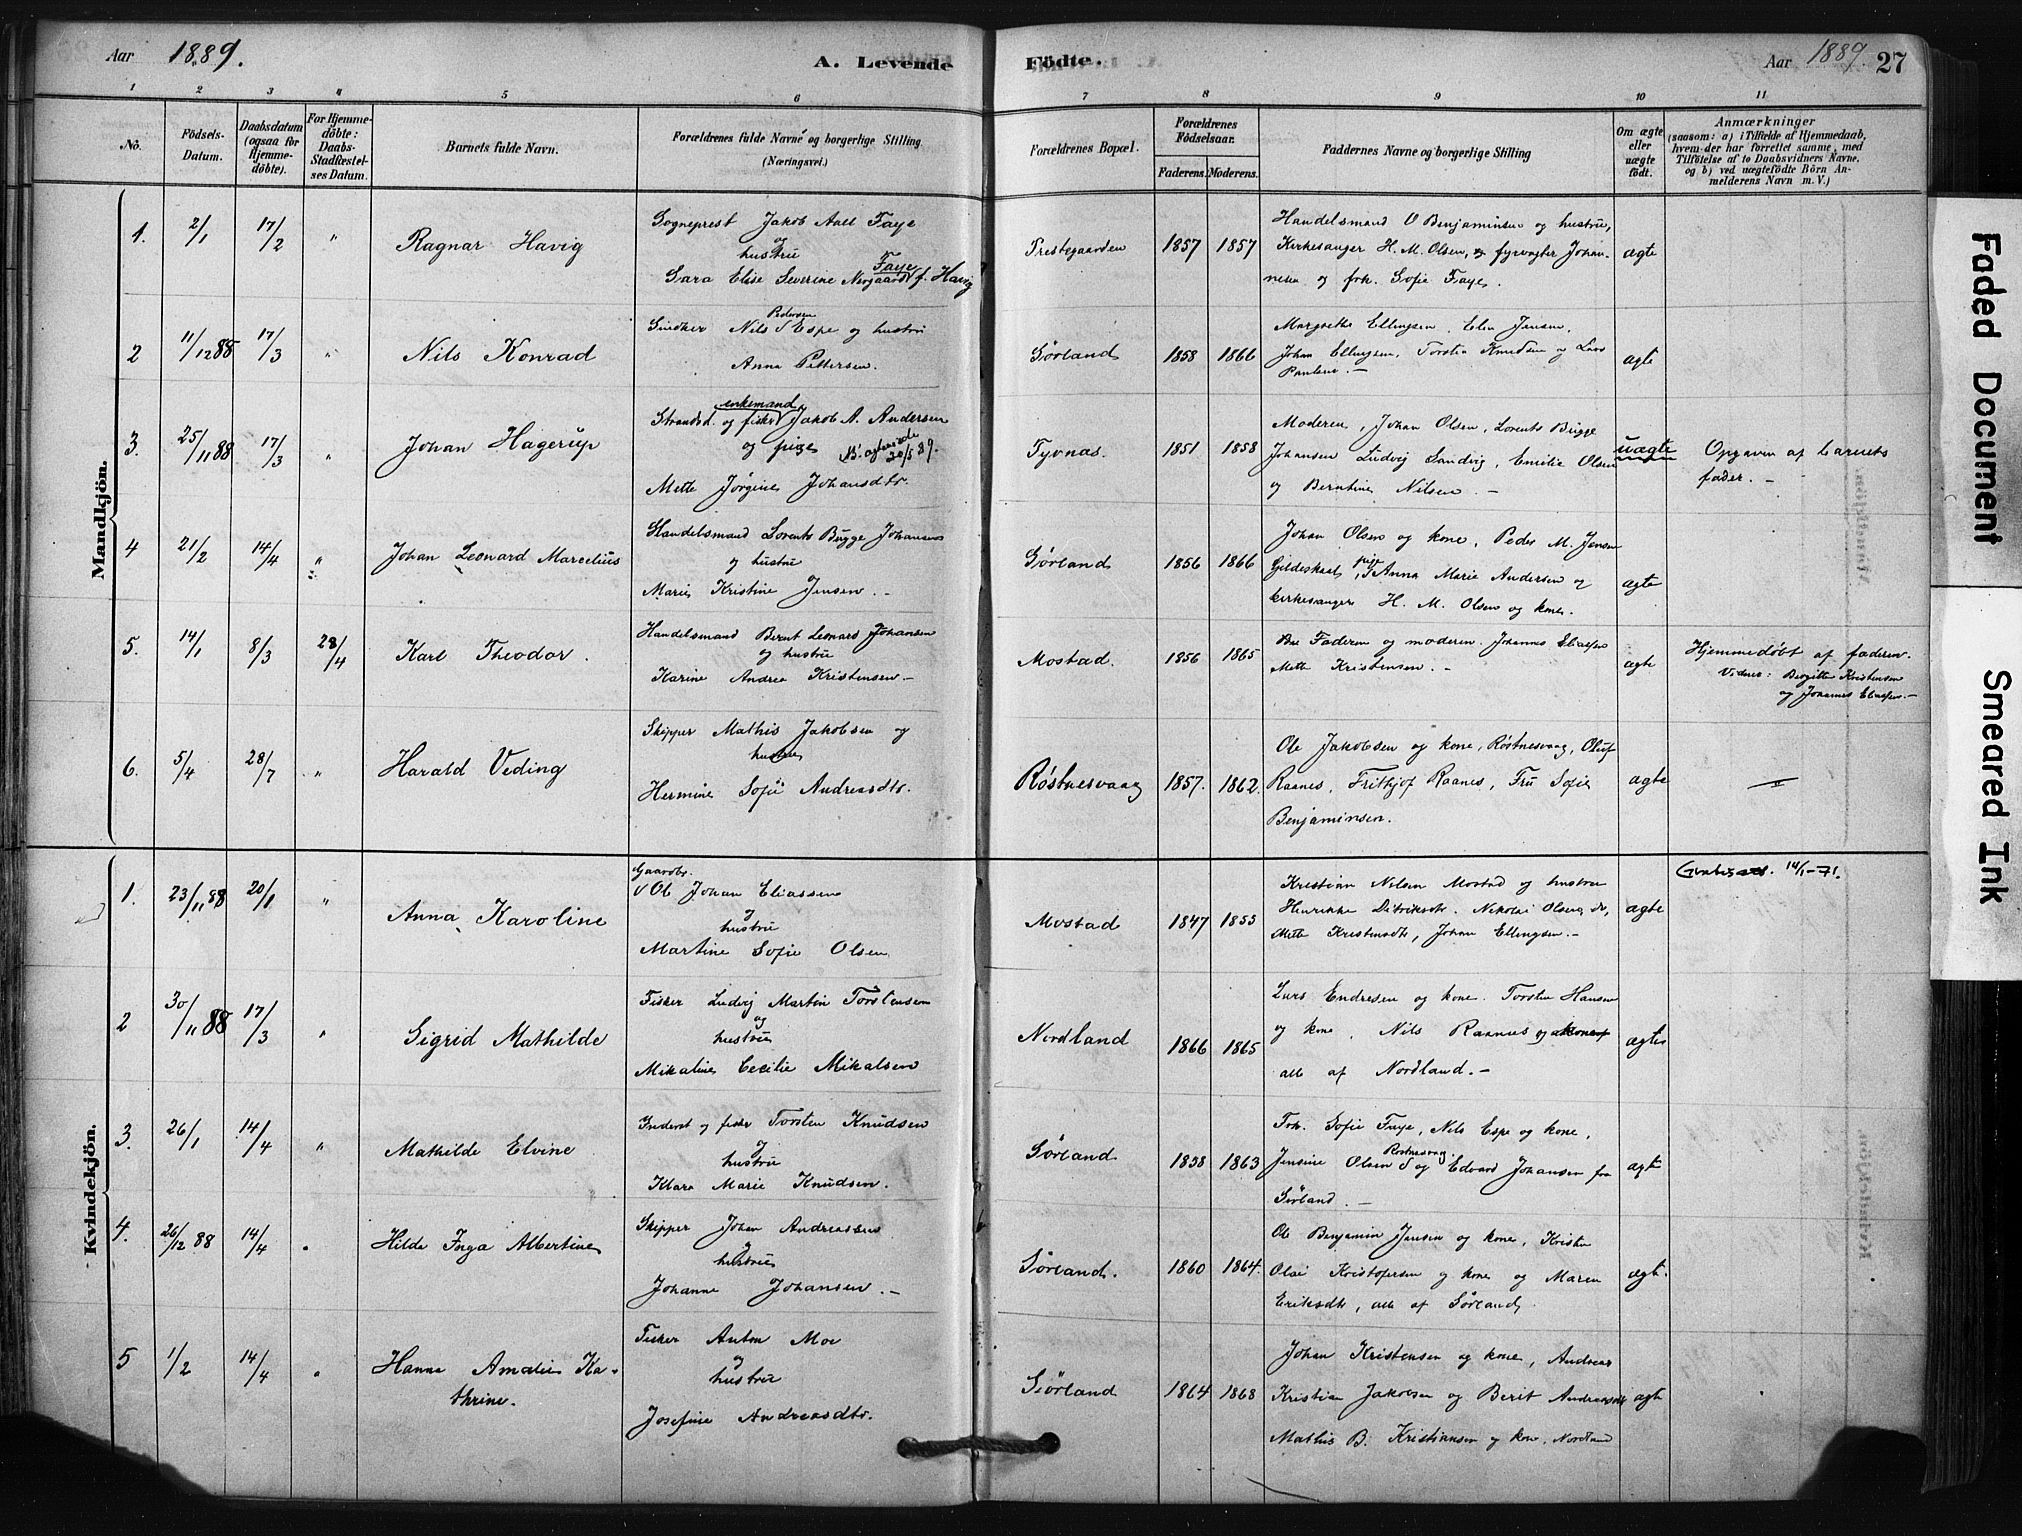 Aar 1889.
A. Levende Födte.
Aar 1889. 27
1 2 3 4 5 6 7 8 9 10 11
No.
Födsels-Datum.
Daabsdatum (ogsaa for Hjemme-döbte).
For Hjemme-döbte: Daabs-Stadfæstel-ses Datum.
Barnets fulde Navn.
Forældrenes fulde Navne og borgerlige Stilling (Næringsvei).
Forældrenes Bopæl.
Forældrenes Födselsaar.
Faderens. Moderens.
Faddernes Navne og borgerlige Stilling
Om ægte eller uægte födt.
Anmærkninger
(saasom: a) i Tilfælde af Hjemmedaab,
hvem der har forrettet samme, med
Tilföielse af to Daabsvidners Navne,
og b) ved uægtefödte Börn An-
melderens Navn m. V.)
Mandkjön.
1. 2/1 17/2 " Ragnar Havig
Sogneprest Jakob Aall Faye
og
hustru
Faye
Sara Elise Severine Nergaard f. Havig
Prestegaarden 1857 1857
Handelsmand O Benjaminsen og hustru,
Kirkesanger H. M. Olsen, fyrvogter Johan-
nesen og frk. Sofie Faye.
ægte
2 11/12 88 17/3 " Nils Konrad
Pedersen
Nils Espe og hustru
Anna Pettersen.
Sørland 1858 1866
Margrethe Ellingsen, Elen Jensen,
Johan Ellingsen, Torsten Knudsen og Lars
Paulsen. -
ægte
3. 25/11 88 17/3 " Johan Hagerup
enkemand
Strands. og fisker Jakob A. Andersen
og pige
Mette Jørgine Johansdtr.
Tyvnæs. 1851 1858
Moderen, Johan Olsen, Lorents Bugge
Johansen Ludvig Sandvig, Emilie Olsen
og Berntine Nilsen. -
uægte
Opgaven af barnets
fader. -
4 21/2 14/4 " Johan Leonard Marcelius
Handelsmand Lorents Bugge Johansen
og hustru
Marie Kristine Jensen. -
Sørland 1856 1866
Johan Olsen og kone, Peder M. Jensen
Gildeskaal, pige Anna Marie Andersen og
kirkesanger H. M. Olsen og kone.
ægte
5. 14/1 8/3 28/4 Karl Theodor.
Handelsmand Bernt Leonard Johansen
og hustru
Karine Andrea Kristensen. -
Mostad. 1856 1865
Faderen og moderen. Johannes Eliassen
Mette Kristensen. -
ægte
Hjemmedøbt af faderen.
Vidner: Birgitte Kristensen
og Johannes Eliassen. -
6. 5/4 28/7 " Harald Veding
Skipper Mathis Jakobsen og
hustru
Hermine Sofie Andreasdtr.
Røstnesvaag 1857. 1862.
Ole Jakobsen og kone, Røstnesvaag, Oluf
Raanes, Frithjof Raanes, Fru Sofie
Benjaminsen.
ægte
Kvindekjön.
1. 23/11 88 20/1 " Anna Karoline
Gaardbr.
Ole Johan Eliassen
og
hustru
Martine Sofie Olsen
Mostad 1847 1855
Kristian Nilsen Mostad og hustru
Henrikke Ditriksdtr. Nikolai Olsen,
Mette Kristensdtr, Johan Ellingsen. -
ægte
14/1-71.
2 30/11 88 17/3 " Sigrid Mathilde
Fisker Ludvig Martin Torstensen
og
hustru
Mikaline Cecilie Mikalsen
Nordland 1866 1865
Lars Endresen og kone. Torsten Hansen
og kone, Nils Raanes og kone
alle af Nordland. -
ægte
3. 26/1 14/4 " Mathilde Elvine
Inderst og fisker Torsten Knudsen
og
hustru
Klara Marie Knudsen.
Sørland 1858 1863
Frk. Sofie Faye, Nils Espe og kone,
Røstnesvaag
Jensine Olsen og Edvard Johansen fra
Sørland. -
ægte
4. 26/12 88 14/4 Hilda Inga Albertine
Skipper Johan Andreassen
og
hustru
Johanne Johansen. -
Sørland. 1860 1864.
Ole Benjamin Jensen og kone, Kristen
Olai Kristofersen og kone og Maren
Eriksdtr, alle af Sørland,
ægt.
5 1/2 14/4 Hanna Amalie Ka-
thrine.
Fisker Anton Moe
og
hustru
Josefine Andreasdtr.
Sørland 1864 1868
Johan Kristensen og kone, Andreas
Kristian Jakobsen og Berit Andreasdtr
Mathis B. Kristiansen og kone, Nordland
ægte
Faded Document
Smeared Ink